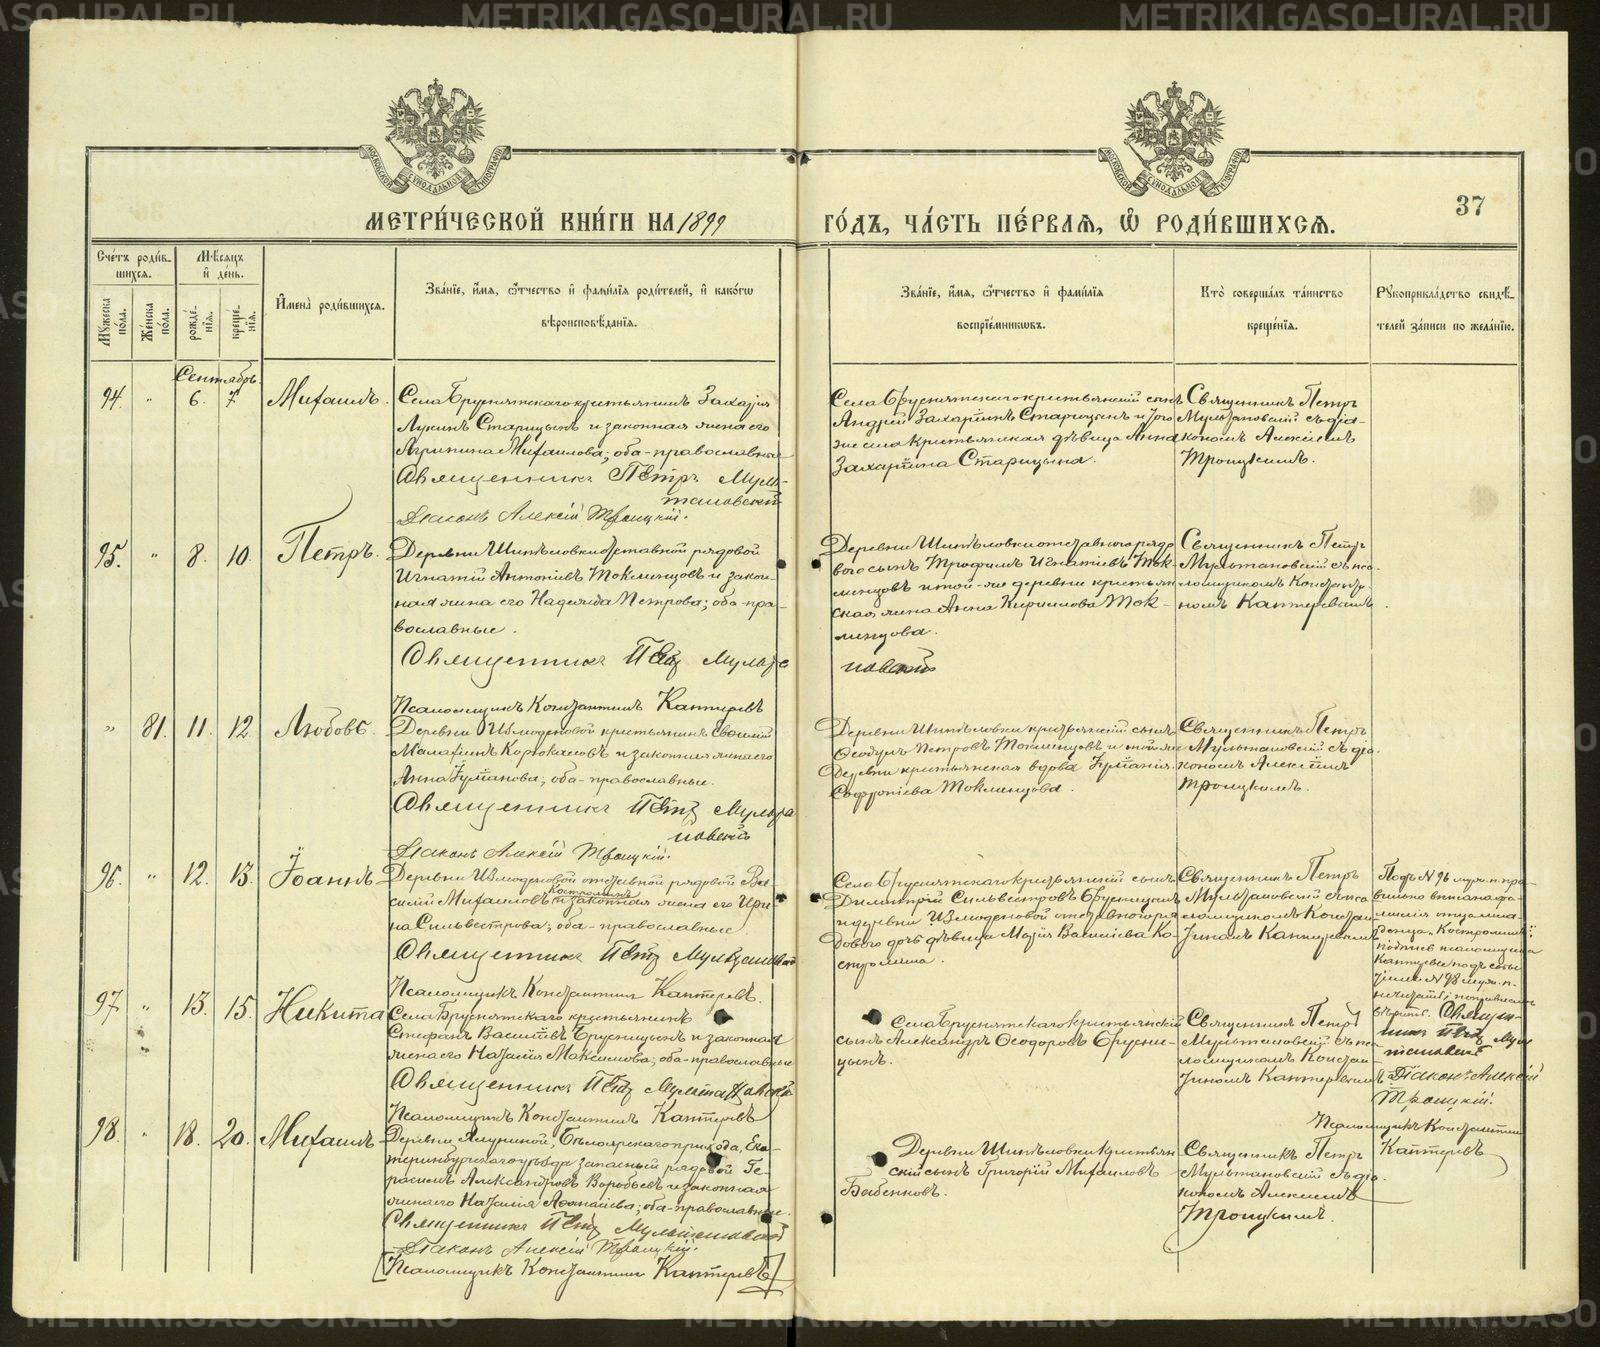 METRIKI.GASO-URAL.RU
МЕТРИ́ЧЕСКОЙ КНИ́ГИ НА 1899
ГО́ДЪ, ЧА́СТЬ ПЕ́РВАЯ, Ѽ РОДИ́ВШИХСЯ.
37
Сче́тъ роди́в-
шихся.
Мѣ́сяцъ
и҆ де́нь.
Мꙋ́жеска
по́ла.
Же́нска
по́ла.
рожде́-
нїя.
креще́-
нїя.
И҆мена̀ роди́вшихся.
Зва́нїе, и҆́мя, ѻ҆́тчество и҆ фами́лїя роди́телей, и҆ како́гѡ
вѣроисповѣ́данїя.
Зва́нїе, и҆́мя, ѻ҆́тчество и҆ фами́лїя
воспрїе́мникѡвъ.
Кто̀ соверша́лъ та́инство
креще́нїя.
Рꙋкоприкла́дство свидѣ́-
телей за́писи по жела́нїю.
Сентябрь
94. " 6. 7. Михаилъ.
Села Бруснятскаго крестьянинъ Захарія
Лукинъ Старицынъ и законная жена его
Агрипина Михаилова; оба-православные
Священникъ Петръ Муль-
тановскій
Діаконъ Алексій Троицкій.
Села Бруснятскаго крестьянскій сынъ
Андрей Захаріинъ Старицынъ и того
же села крестьянская дѣвица Анна
Захаріина Старицына.
Священникъ Петръ
Мультановскій съ діа-
кономъ Алексіемъ
Троицкимъ.
95. " 8. 10. Петръ.
Деревни Шипѣловки отставной рядовой
Игнатій Антоніевъ Токменцовъ и закон-
ная жена его Надежда Петрова; оба-пра-
вославные.
Священникъ Петръ Мульта
новскій
Псаломщикъ Константинъ Кантеревъ
Деревни Шипѣловки отставного рядо-
вого сынъ Трофимъ Игнатіевъ Ток-
менцовъ и той-же деревни крестьян
ская жена Анна Кириллова Ток-
менцова.
Священникъ Петръ
Мультановскій съ пса-
ломщикомъ Констант-
номъ Кантеревымъ.
" 81. 11. 12 Любовь.
Деревни Измоденовой крестьянинъ
Малахіинъ Корюкаловъ и законная жена его
Анна; оба-православные.
Священникъ Петръ Мульта
новскій
Діаконъ Алексій Троицкій.
Деревни Шипѣловки крестьянскій сынъ
Ѳеодоръ Петровъ Токменцовъ и той же
деревни крестьянская вдова
Софроніева Токменцова.
Священникъ Петръ
Мультановскій съ діа-
кономъ Алексіемъ
Троицкимъ.
96. " 12. 13. Іоаннъ
Деревни Измоденовой отставной рядовой Ва-
силій Михаиловъ Костроминъ и законная жена его Ири-
на Сильвестрова; оба-православные.
Священникъ Петръ Мультановскій
Псаломщикъ Константинъ Кантеревъ.
Села Бруснятскаго крестьянскій сынъ
Димитрій Сильвестровъ Брусницынъ
и деревни Измоденовой отставного ря
дового дочь дѣвица Марія Василіева Ко-
стромина.
Священникъ Петръ
Мультановскій съ пса
ломщикомъ Констан-
тиномъ Кантеревымъ
Подъ № 96 муж. п. пра-
вильно вписана фа-
милія отца мла-
денца "Костроминъ";
подпись псаломщика
Кантерева подъ
№ 98 муж. п.
не читать;
вѣрить. Священ-
никъ Петръ Муль
тановскій
Діаконъ Алексій
Троицкій.
Псаломщикъ Константинъ
Кантеревъ
97 " 13. 15. Никита
Села Бруснятскаго крестьянинъ
Стефанъ Василіевъ Брусницынъ и законная
жена его Наталія Максимова; оба-православные
Священникъ Петръ Мультановскій
Псаломщикъ Константинъ Кантеревъ
Села Бруснятскаго крестьянскій
сынъ Александръ Ѳеодоровъ Брусни-
цынъ.
Священникъ Петръ
Мультановскій съ пса
ломщикомъ Констан-
тиномъ Кантеревымъ
98. " 18. 20. Михаилъ
Деревни Ялуниной, Бѣлоярскаго прихода, Ека-
теринбургскаго уѣзда запасный рядовой Ге-
расимъ Александровъ Воробьевъ и законная
жена его Наталія Аѳанасіева; оба-православные.
Священникъ Петръ Мультановскій
Діаконъ Алексій Троицкій.
[Псаломщикъ Константинъ Кантеревъ]
Деревни Шипѣловки крестьян
скій сынъ Григорій Михаиловъ
Бабенковъ.
Священникъ Петръ
Мультановскій съ діа-
кономъ Алексіемъ
Троицкимъ.